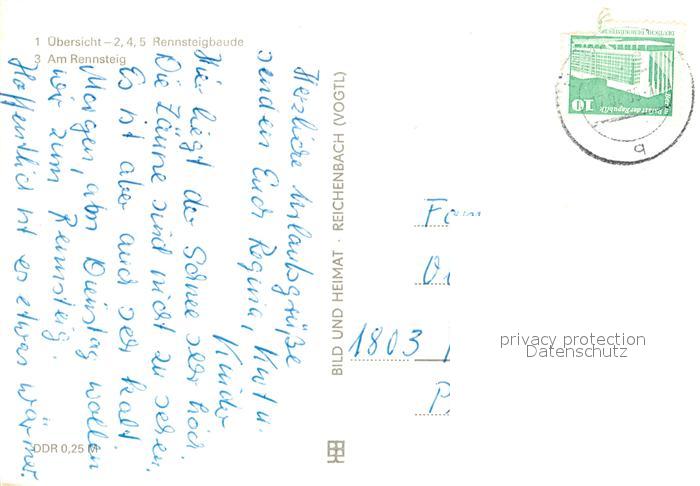 1 Übersicht – 2, 4, 5 Rennsteigbaude
3 Am Rennsteig
Herzliche Urlaubsgrüße
senden Euch Regina, Kurt u.
Kinder
Hier liegt der Schnee sehr hoch.
Die Zäune sind nicht zu sehen.
Es ist aber auch sehr kalt.
Morgen, am Dienstag wollen
wir zum Rennsteig.
Hoffentlich ist es etwas wärmer.
DDR 0,25 M
BILD UND HEIMAT · REICHENBACH (VOGTL)
DEUTSCHE DEMOKRATISCHE
10
Palast der Republik
Fam
1803
P
privacy protection
Datenschutz